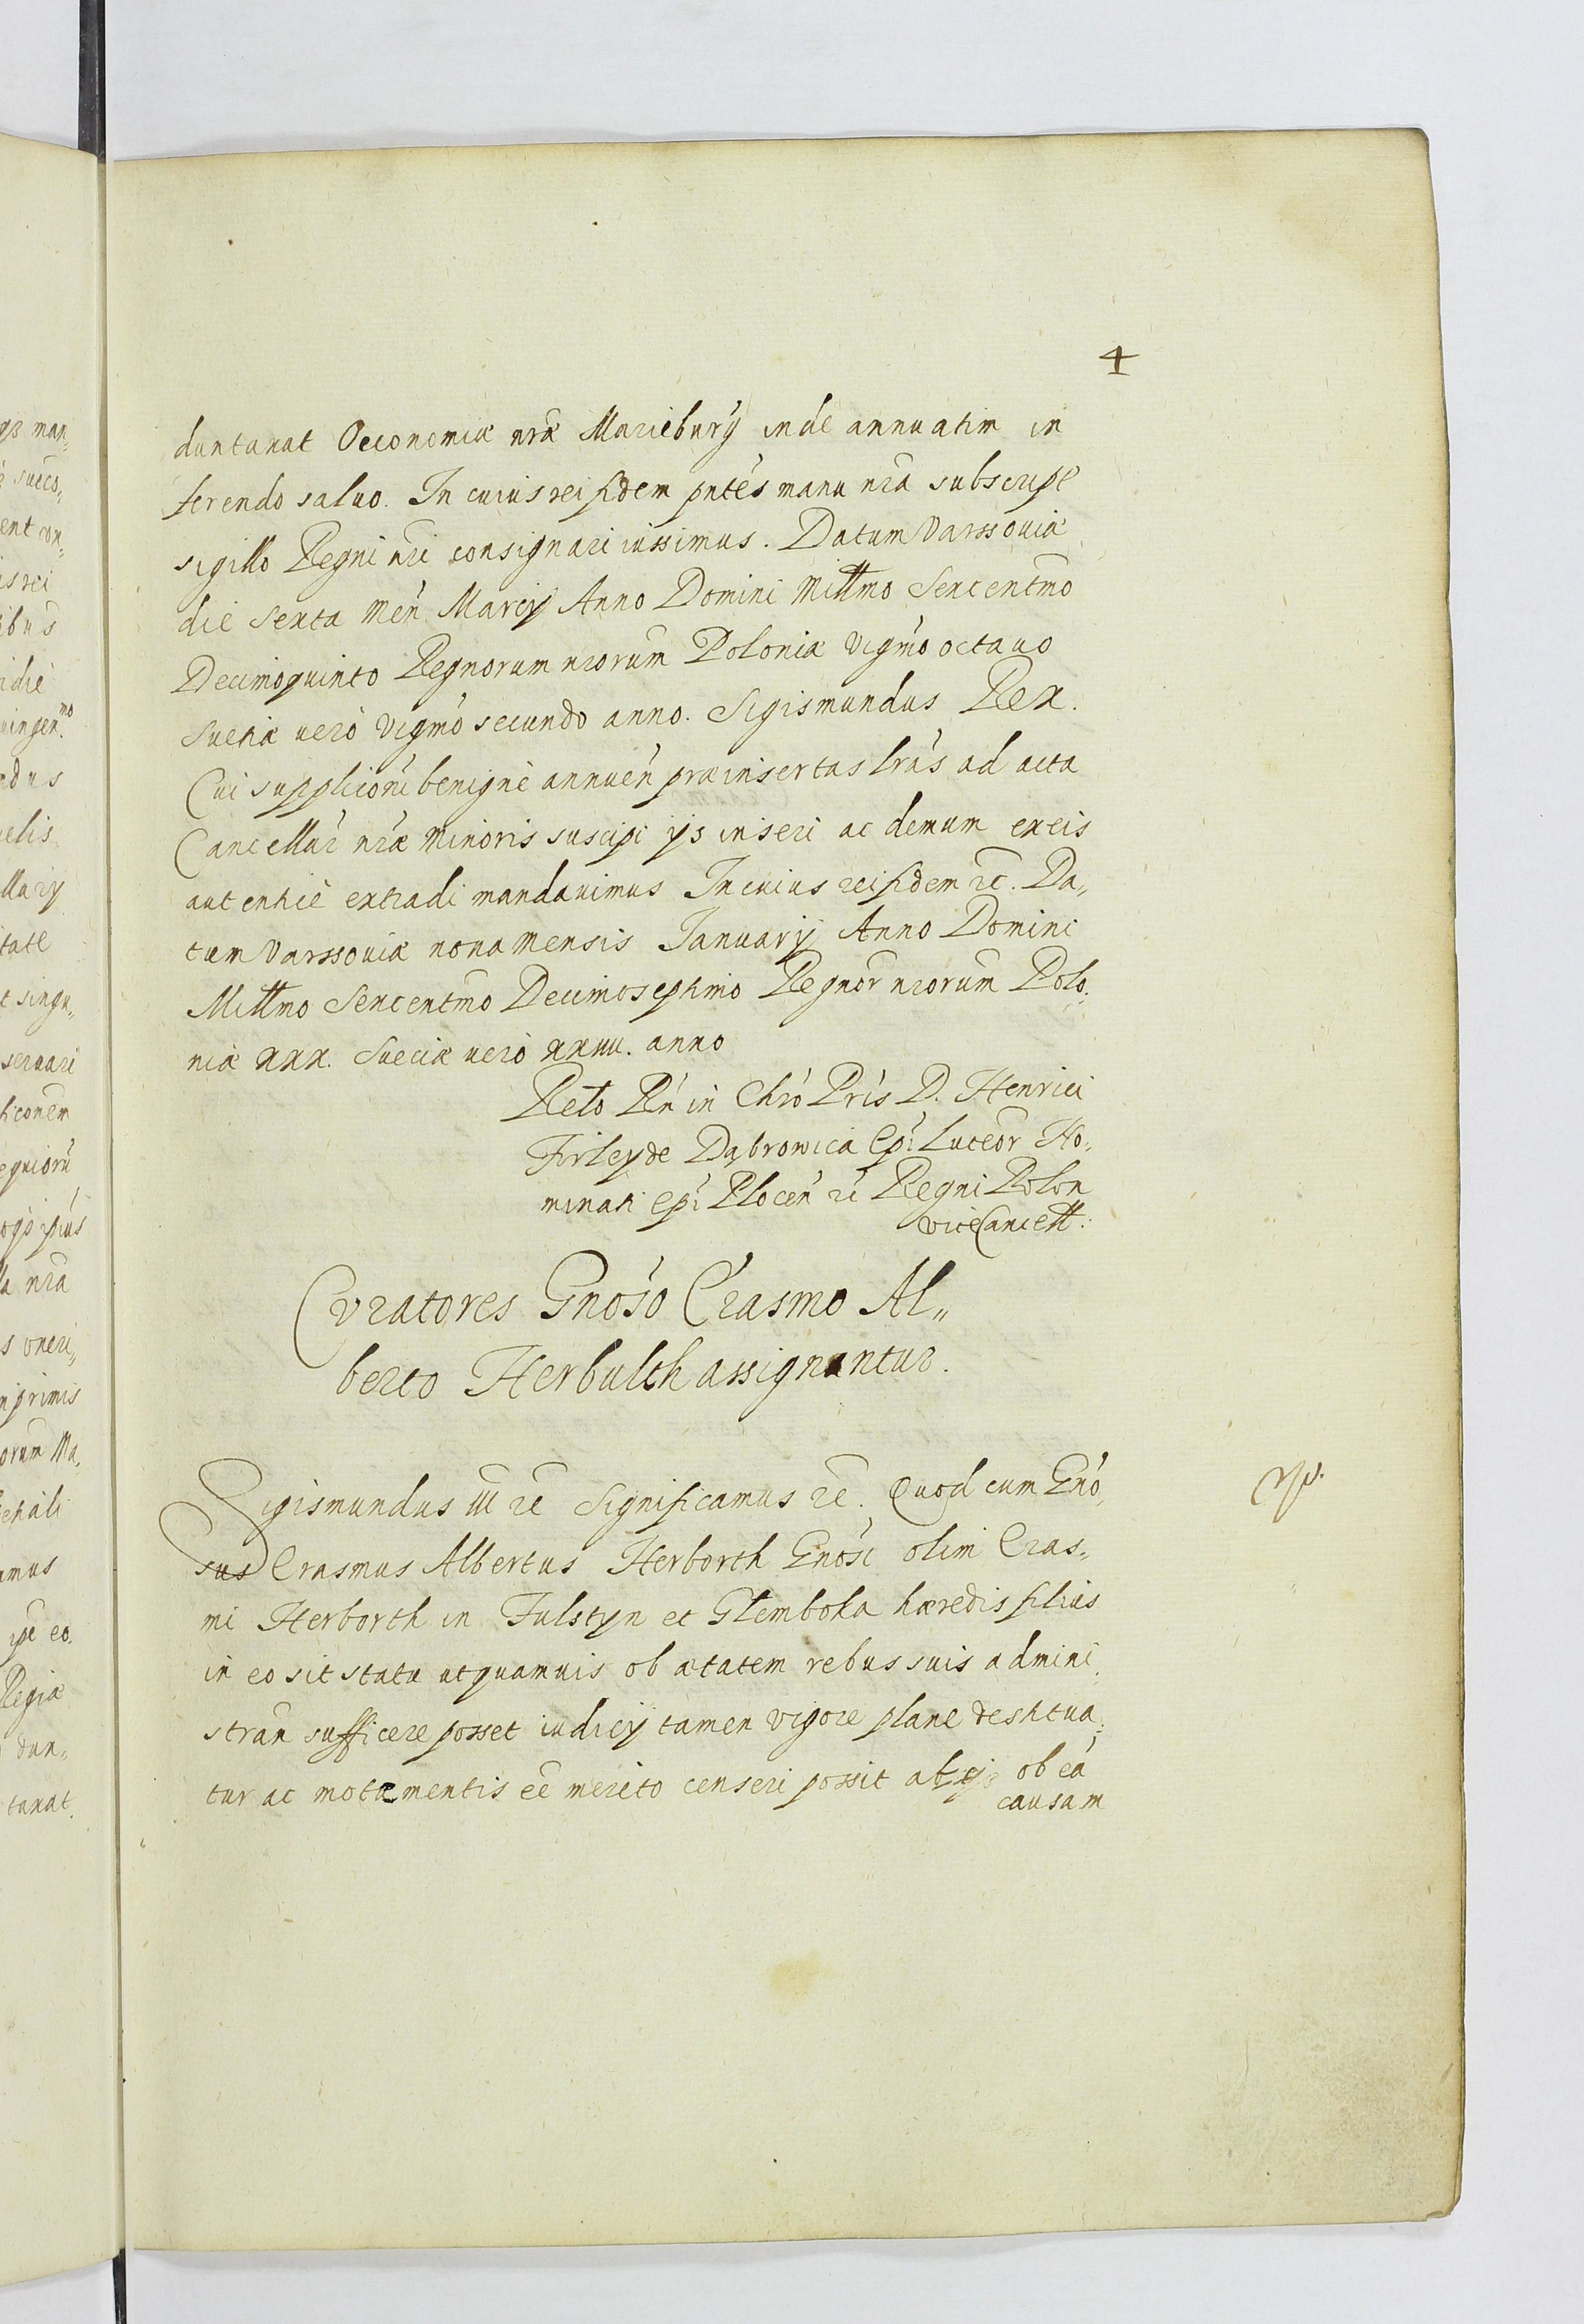 4
duntaxat Oeconomiæ nræ Marieburg̃ inde annuatim in
ferendo saluo. In cuius rei fidem pntés manu nr̃a subscrip̃
sigillo Regni nr̃i consignari iussimus. Datum Varssouiæ
die Sexta Men̄ Marcij Anno Domini Millm̃o Sexcentm̃o
Decimoquinto Regnorum nr̃orum Poloniæ vigm̃o octauo
Suetiæ uero vigm̃o secundo anno. Sigismundus Rex.
Cui supplicioni benignè annueñ præinsertas lrãs ad acta
Cancellar̃ nr̃æ Minoris suscipi ijs inseri ac demum ex eis
autenticè extradi mandauimus In cuius rei fidem ꝛc̃. Da„
tum Varssouiæ nona Mensis Januarij Anno Domini
Millm̃o Sexcentm̃o Decimoseptimo Regnor̃ nr̃orum Polo„
niæ xxx. Sueciæ uero xxiiii. anno
Relo Rñ in Chr̃o Prĩs D. Henrici
Firley de Dąbrowica Ep̃i Luceor̃ No„
minati Ep̃i Plocen̄ ꝛc̃ Regni Polon
vice Cancell:
Curatores Gnõso Erasmo Al„
berto Herbulth assignantur.
Sigismundus III ꝛc̃ Significamus ꝛc̃. Quod cum Gnõ„
sus Erasmus Albertus Herborth Gnõsi olim Eras„
mi Herborth in Fulstyn et Glemboka hæredis filius
in eo sit statu ut quamuis ob ætatem rebus suis admini„
stran̄ sufficere posset iudicij tamen vigore plane destitua„
tur ac motæ mentis eẽ merito censeri possit atqȝ ob eã
causam